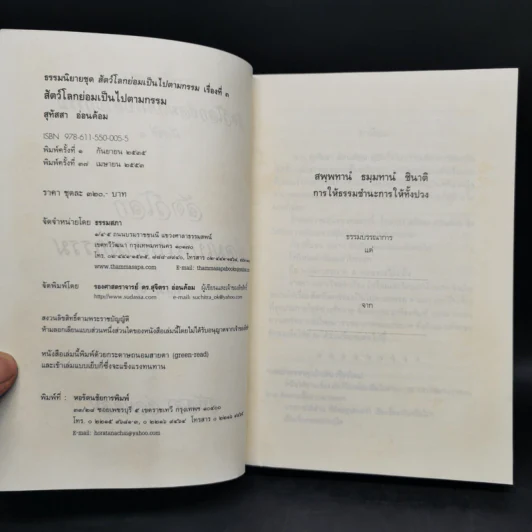 ธรรมนิยายชุด สัตว์โลกย่อมเป็นไปตามกรรม เรื่องที่ ๑
สัตว์โลกย่อมเป็นไปตามกรรม
สุทัสสา อ่อนค้อม
ISBN 978-611-550-005-5
พิมพ์ครั้งที่ ๑ กันยายน ๒๕๓๕
พิมพ์ครั้งที่ ๓๗ เมษายน ๒๕๕๓
ราคา ชุดละ ๓๒๐.- บาท
จัดจำหน่ายโดย ธรรมสภา
๑/๔-๕ ถนนบรมราชชนนี แขวงศาลาธรรมสพน์
เขตทวีวัฒนา กรุงเทพมหานคร ๑๐๑๗๐
โทร.
http://www.thammasapa.com E-mail:
จัดพิมพ์โดย รองศาสตราจารย์ ดร.สุจิตรา อ่อนค้อม ผู้เขียนและเจ้าของลิขสิทธิ์
e-mail: suchitra_ok@yahoo.com
สงวนลิขสิทธิ์ตามพระราชบัญญัติ
ห้ามลอกเลียนแบบส่วนหนึ่งส่วนใดของหนังสือเล่มนี้โดยไม่ได้รับอนุญาตจาก
หนังสือเล่มนี้พิมพ์ด้วยกระดาษถนอมสายตา (green-read)
และเข้าเล่มแบบเย็บกี่ซึ่งจะแข็งแรงทนทาน
พิมพ์ที่ : หอรัตนชัยการพิมพ์
๓๑/๒๘ ซอยเพชรบุรี ๕ เขตราชเทวี กรุงเทพฯ ๑๐๔๐๐
โทร. โทรสาร
E-mail:
สพฺพทานํ ธมฺมทานํ ชินาติ
การให้ธรรมชำนะการให้ทั้งปวง
ธรรมบรรณาการ
แด่
จาก